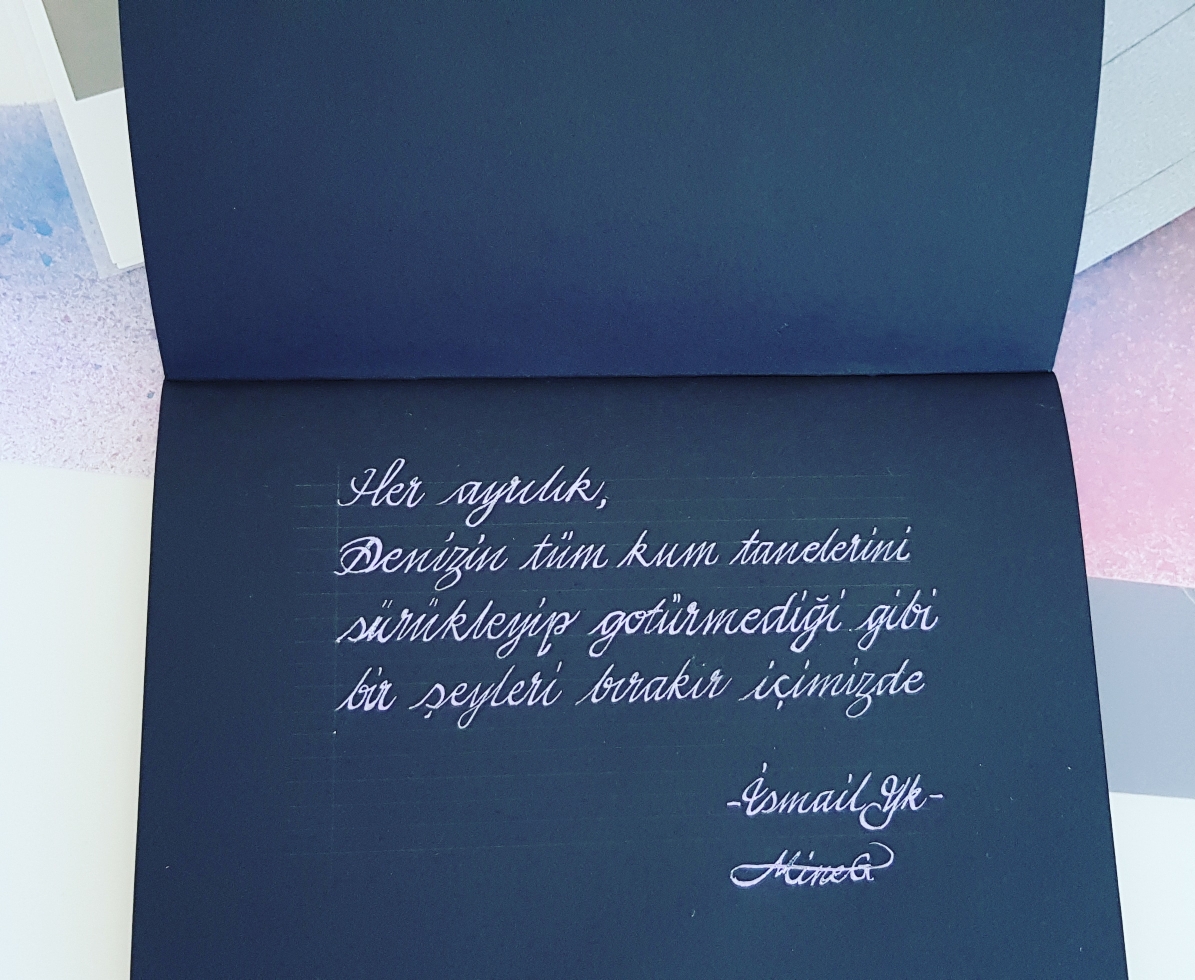 Her ayrılık,
Denizin tüm kum tanelerini
sürükleyip gotürmediği gibi
bir şeyleri bırakır içimizde
-İsmail Yk-
MineG